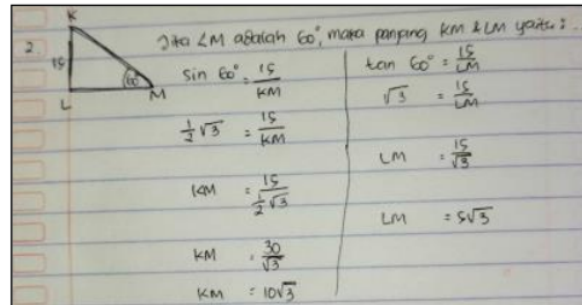 2.
K
15
L
60°
M
Jika ∠M adalah 60°, maka panjang KM & LM yaitu :
sin 60° = 15/KM
1/2 √3 = 15/KM
KM = 15/(1/2 √3)
KM = 30/√3
KM = 10√3
tan 60° = 15/LM
√3 = 15/LM
LM = 15/√3
LM = 5√3